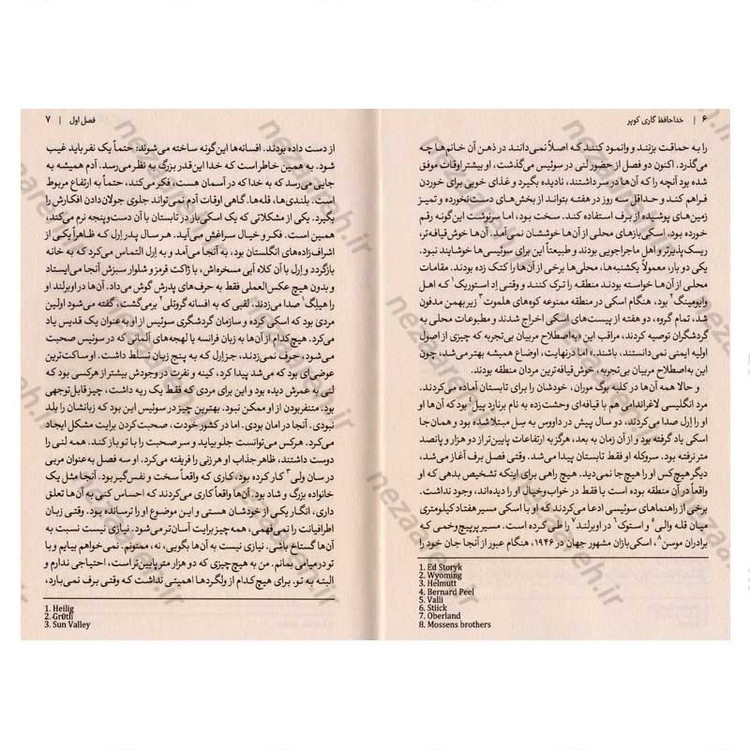 ۶ | خداحافظ گاری کوپر
را به حماقت بزنند و وانمود کنند که اصلاً نمی‌دانند در ذهن آن خانم‌ها چه
می‌گذرد. اکنون دو فصل از حضور لنی در سوئیس می‌گذشت، او بیشتر اوقات موفق
شده بود آنچه را که آن‌ها در سر داشتند، نادیده بگیرد و غذای خوبی برای خوردن
فراهم کند و حداقل سه روز در هفته بتواند از بخش‌های دست‌نخورده و تمیز
زمین‌های پوشیده از برف استفاده کند. سخت بود، اما سرنوشت این‌گونه رقم
خورده بود. اسکی‌بازهای محلی از آن‌ها خوششان نمی‌آمد. آن‌ها خوش‌قیافه‌تر،
ریسک‌پذیرتر و اهل ماجراجویی بودند و طبیعتاً این برای سوئیسی‌ها خوشایند نبود.
یکی دو بار، معمولاً یکشنبه‌ها، محلی‌ها برخی از آن‌ها را کتک زده بودند. مقامات
محلی از آن‌ها خواسته بودند منطقه را ترک کنند و وقتی اِد استوریک۱ که اهل
وایومینگ۲ بود، هنگام اسکی در منطقه ممنوعه کوه‌های هلموت۳ زیر بهمن مدفون
شد، تمام گروه، دو هفته از پیست‌های اسکی اخراج شدند و مطبوعات محلی به
گردشگران توصیه کردند، مراقب این به‌اصطلاح مربیان بی‌تجربه که چیزی از اصول
اولیه ایمنی نمی‌دانستند، باشند، اما درنهایت، اوضاع همیشه بهتر می‌شد، چون
این به‌اصطلاح مربیان بی‌تجربه، خوش‌قیافه‌ترین مردان منطقه بودند.
و حالا همه آن‌ها در کلبه بوگ موران، خودشان را برای تابستان آماده می‌کردند.
مرد انگلیسی لاغراندامی هم با قیافه‌ای وحشت‌زده به نام برنارد پیل۴ بود که آن‌ها او
را اِرل صدا می‌کردند، دو سال پیش در داووس به سِل مبتلا شده بود و همان‌جا
اسکی یاد گرفته بود و از آن زمان به بعد، هرگز به ارتفاعات پایین‌تر از دو هزار و پانصد
متر نرفته بود. سروکله او فقط تابستان پیدا می‌شد. وقتی فصل برف آغاز می‌شد،
دیگر هیچ‌کس او را هیچ‌جا نمی‌دید. هیچ راهی برای اینکه تشخیص بدهی که او
واقعاً در آن منطقه بوده است یا فقط در خواب‌وخیال او را دیده‌اند، وجود نداشت.
برخی از راهنماهای سوئیسی ادعا می‌کردند که او با اسکی مسیر هفتاد کیلومتری
میان قله والی۵ و استوک۶ در اوبرلند۷ را طی کرده است. مسیر پرپیچ‌وخمی که
برادران موسن۸، اسکی‌بازان مشهور جهان در ۱۹۴۶، هنگام عبور از آنجا جان خود را
1. Ed Storyk
2. Wyoming
3. Helmutt
4. Bernard Peel
5. Valli
6. Stiick
7. Oberland
8. Mossens brothers
فصل اول | ۷
از دست داده بودند. افسانه‌ها این‌گونه ساخته می‌شوند: حتماً یک نفر باید غیب
شود. به همین خاطر است که خدا این‌قدر بزرگ به نظر می‌رسد. آدم همیشه به
جایی می‌رسد که به خدا که در آسمان هست، فکر می‌کند، حتماً به ارتفاع مربوط
است. بلندی‌ها، قله‌ها. گاهی اوقات آدم نمی‌تواند جلوی جولان‌دادن افکارش را
بگیرد. یکی از مشکلاتی که یک اسکی‌باز در تابستان با آن دست‌وپنجه نرم می‌کند،
همین است. فکر و خیال سراغش می‌آید. هر سال پدر اِرل که ظاهراً یکی از
اشراف‌زاده‌های انگلستان بود، به آنجا می‌آمد و به اِرل التماس می‌کرد که به خانه
بازگردد و اِرل با آن کلاه آبی مسخره‌اش، با ژاکت قرمز و شلوار سبزش آنجا می‌ایستاد
و بدون هیچ عکس‌العملی فقط به حرف‌های پدرش گوش می‌داد. آن‌ها در اوبرلند او
را هیلگ۱ صدا می‌زدند، لقبی که به افسانه گروتلی۲ برمی‌گشت، گفته می‌شود اولین
مردی بود که اسکی کرده و سازمان گردشگری سوئیس از او به عنوان یک قدیس یاد
می‌کرد. هیچ‌کدام از آن‌ها به زبان فرانسه یا لهجه‌های آلمانی که در سوئیس صحبت
می‌شود، حرف نمی‌زدند، جز اِرل که به پنج زبان تسلط داشت. او ساکت‌ترین
عوضی‌ای بود که می‌شد پیدا کرد، کینه و نفرت در وجودش بیشتر از هرکسی بود که
لنی به عمرش دیده بود و این برای مردی که فقط یک ریه داشت، چیز قابل‌توجهی
بود. متنفربودن از او ممکن نبود. بهترین چیز در سوئیس این بود که زبانشان را بلد
نبودی. آنجا در امان بودی. اما در کشور خودت، صحبت‌کردن برایت مشکل ایجاد
می‌کرد. هرکس می‌توانست جلو بیاید و سر صحبت را با تو باز کند. همه لنی را
دوست داشتند، ظاهر جذاب او هر زنی را فریفته می‌کرد. او سه فصل به‌عنوان مربی
در سان ولی۳ کار کرده بود، کاری که واقعاً سخت و نفس‌گیر بود. آنجا مثل یک
خانواده بزرگ و شاد بود. آن‌ها واقعاً کاری می‌کردند که احساس کنی به آن‌ها تعلق
داری، انگار یکی از خودشان هستی و این موضوع، او را ترسانده بود. وقتی زبان
اطرافیانت را نمی‌فهمی، همه‌چیز برایت آسان‌تر می‌شود. نیازی نیست نسبت به
آن‌ها گستاخ باشی. نیازی نیست به آن‌ها بگویی، نه، ممنونم. نمی‌خواهم بیایم و با
تو در میامی بمانم. من به هیچ‌چیزی که دو هزار متر پایین‌تر است، احتیاجی ندارم و
البته به تو. برای هیچ‌کدام از ولگردها اهمیتی نداشت که وقتی برف نمی‌بارد،
1. Heilig
2. Grütli
3. Sun Valley
nezareh.ir